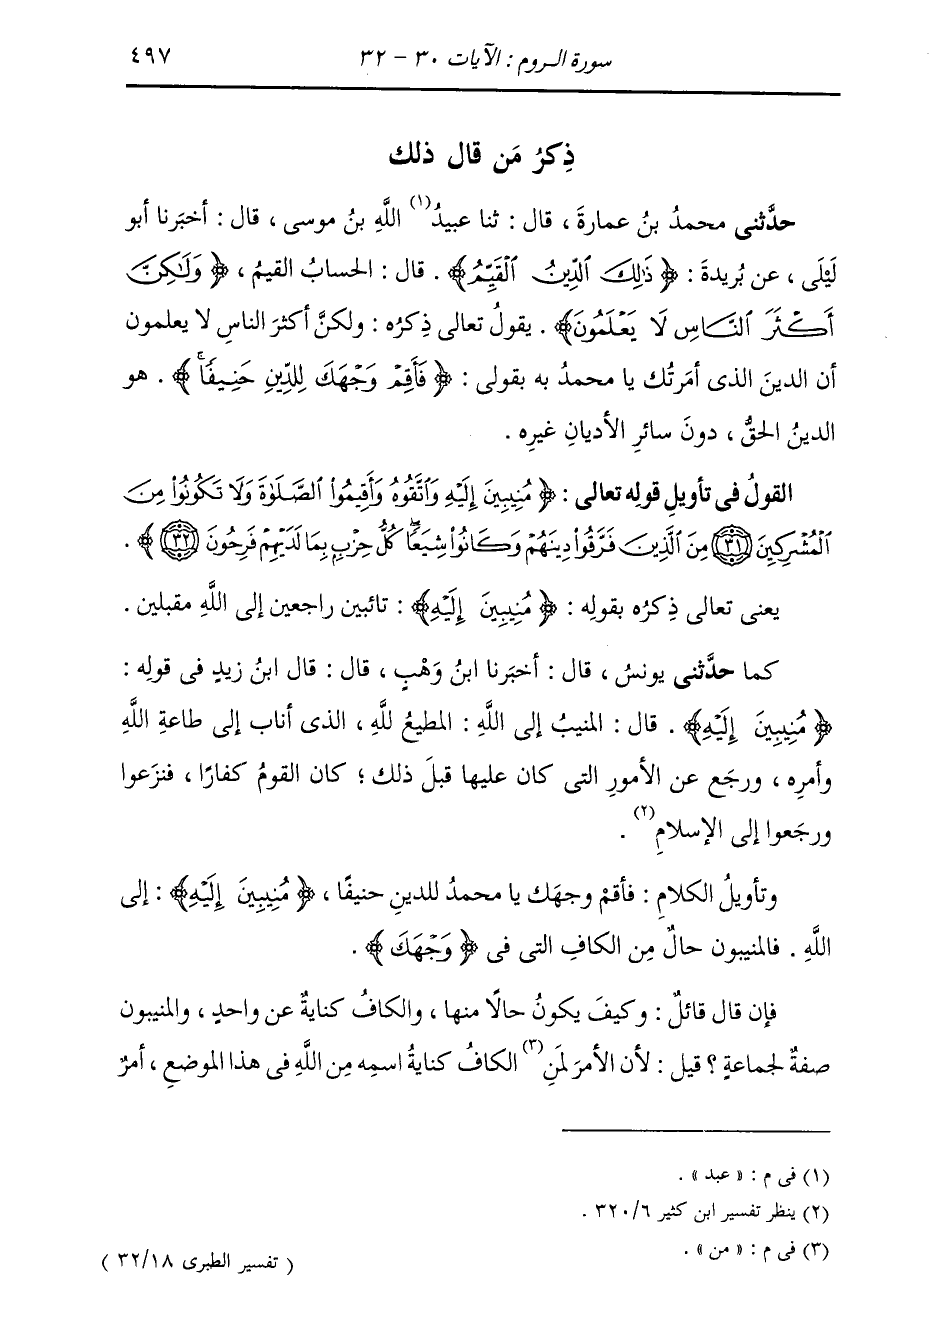 سورة الروم : الآيات ٣٠ - ٣٢ ٤٩٧
ذِكرُ مَن قال ذلك
حدَّثنى محمدُ بنُ عمارةَ ، قال : ثنا عبيدُ(١) اللَّهِ بنُ موسى ، قال : أخبَرنا أبو
لَيْلَى ، عن بُريدةَ : ﴿ ذَٰلِكَ الدِّينُ الْقَيِّمُ﴾ . قال : الحسابُ القيمُ ، ﴿ وَلَٰكِنَّ
أَكْثَرَ النَّاسِ لَا يَعْلَمُونَ﴾ . يقولُ تعالى ذِكرُه : ولكنَّ أكثرَ الناسِ لا يعلمون
أن الدينَ الذى أمَرتُك يا محمدُ به بقولى : ﴿ فَأَقِمْ وَجْهَكَ لِلدِّينِ حَنِيفًا ۚ﴾ . هو
الدينُ الحقُّ ، دونَ سائرِ الأديانِ غيرِه .
القولُ فى تأويلِ قولِه تعالى : ﴿ مُنِيبِينَ إِلَيْهِ وَاتَّقُوهُ وَأَقِيمُوا الصَّلَوٰةَ وَلَا تَكُونُوا مِنَ
الْمُشْرِكِينَ ٣١ مِنَ الَّذِينَ فَرَّقُوا دِينَهُمْ وَكَانُوا شِيَعًا ۖ كُلُّ حِزْبٍ بِمَا لَدَيْهِمْ فَرِحُونَ ٣٢ ﴾ .
يعنى تعالى ذِكرُه بقولِه : ﴿ مُنِيبِينَ إِلَيْهِ﴾ : تائبين راجعين إلى اللَّهِ مقبلين .
كما حدَّثنى يونسُ ، قال : أخبَرنا ابنُ وَهْبٍ ، قال : قال ابنُ زيدٍ فى قولِه :
﴿ مُنِيبِينَ إِلَيْهِ﴾ . قال : المنيبُ إلى اللَّهِ : المطيعُ للَّهِ ، الذى أناب إلى طاعةِ اللَّهِ
وأمرِه ، ورجَع عن الأمورِ التى كان عليها قبلَ ذلك ؛ كان القومُ كفارًا ، فنزَعوا
ورجَعوا إلى الإسلامِ(٢) .
وتأويلُ الكلامِ : فأقمْ وجهَك يا محمدُ للدينِ حنيفًا ، ﴿ مُنِيبِينَ إِلَيْهِ﴾ : إلى
اللَّهِ . فالمنيبون حالٌ مِن الكافِ التى فى ﴿ وَجْهَكَ ﴾ .
فإن قال قائلٌ : وكيفَ يكونُ حالًا منها ، والكافُ كنايةٌ عن واحدٍ ، والمنيبون
صفةٌ لجماعةٍ ؟ قيل : لأن الأمرَ لمَنِ(٣) الكافُ كنايةُ اسمِه مِن اللَّهِ فى هذا الموضعِ ، أمرٌ
(١) فى م : « عبد » .
(٢) ينظر تفسير ابن كثير ٦/ ٣٢٠ .
(٣) فى م : « من » .
( تفسير الطبرى ١٨/ ٣٢ )